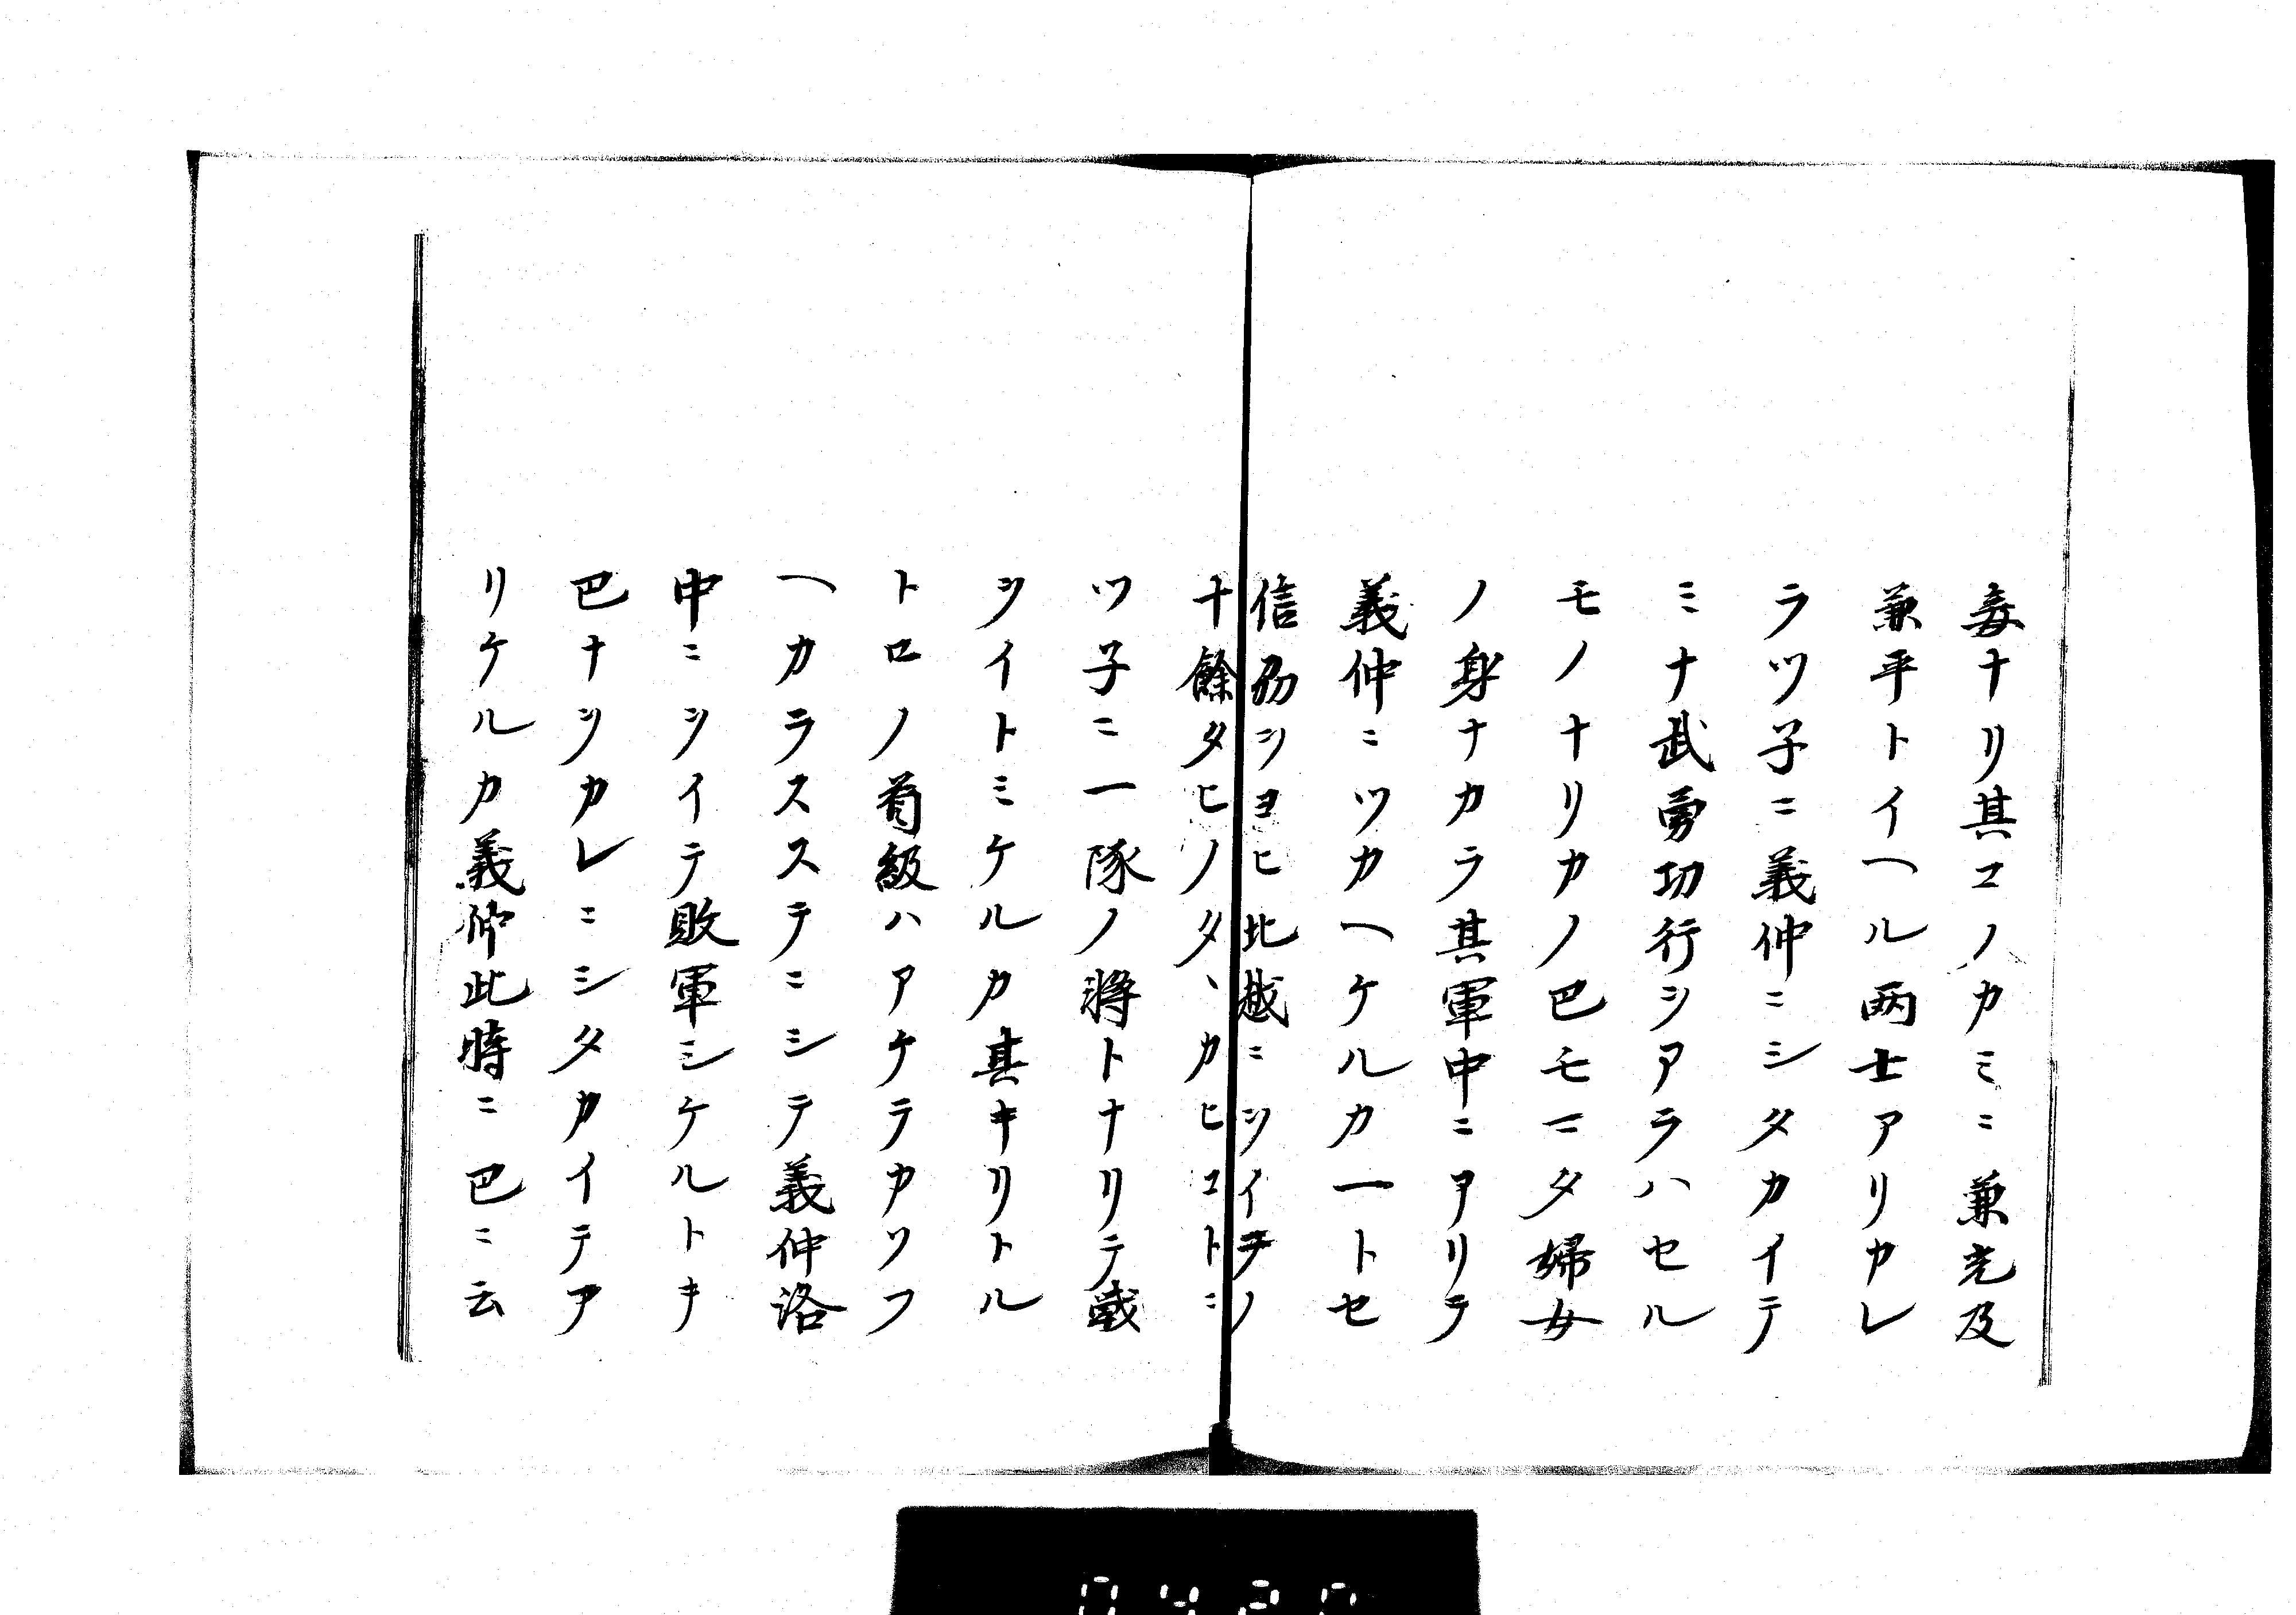 妾ナリ其コノカミニ兼光及
兼平トイヘル両士アリカレ
ラツ子ニ義仲ニシタカイテ
ミナ武勇功行シアラハセル
モノナリカノ巴モニタ婦女
ノ身ナカラ其軍中ニアリテ
義仲ニツカヘケルカ一トセ
信刕ヲヨヒ北越ニヲイテノ
十餘タヒノタヽカヒコトニ
ツ子ニ一隊ノ將トナリテ
ツイトミケルカ其キリトル
トロノ首級ハアケテカソフ
ヘカラスステニシテ義仲洛
中ニシイテ敗軍シケルトキ
巴ナツカレニシタカイテア
リケルカ義仲此時ニ巴ニ云